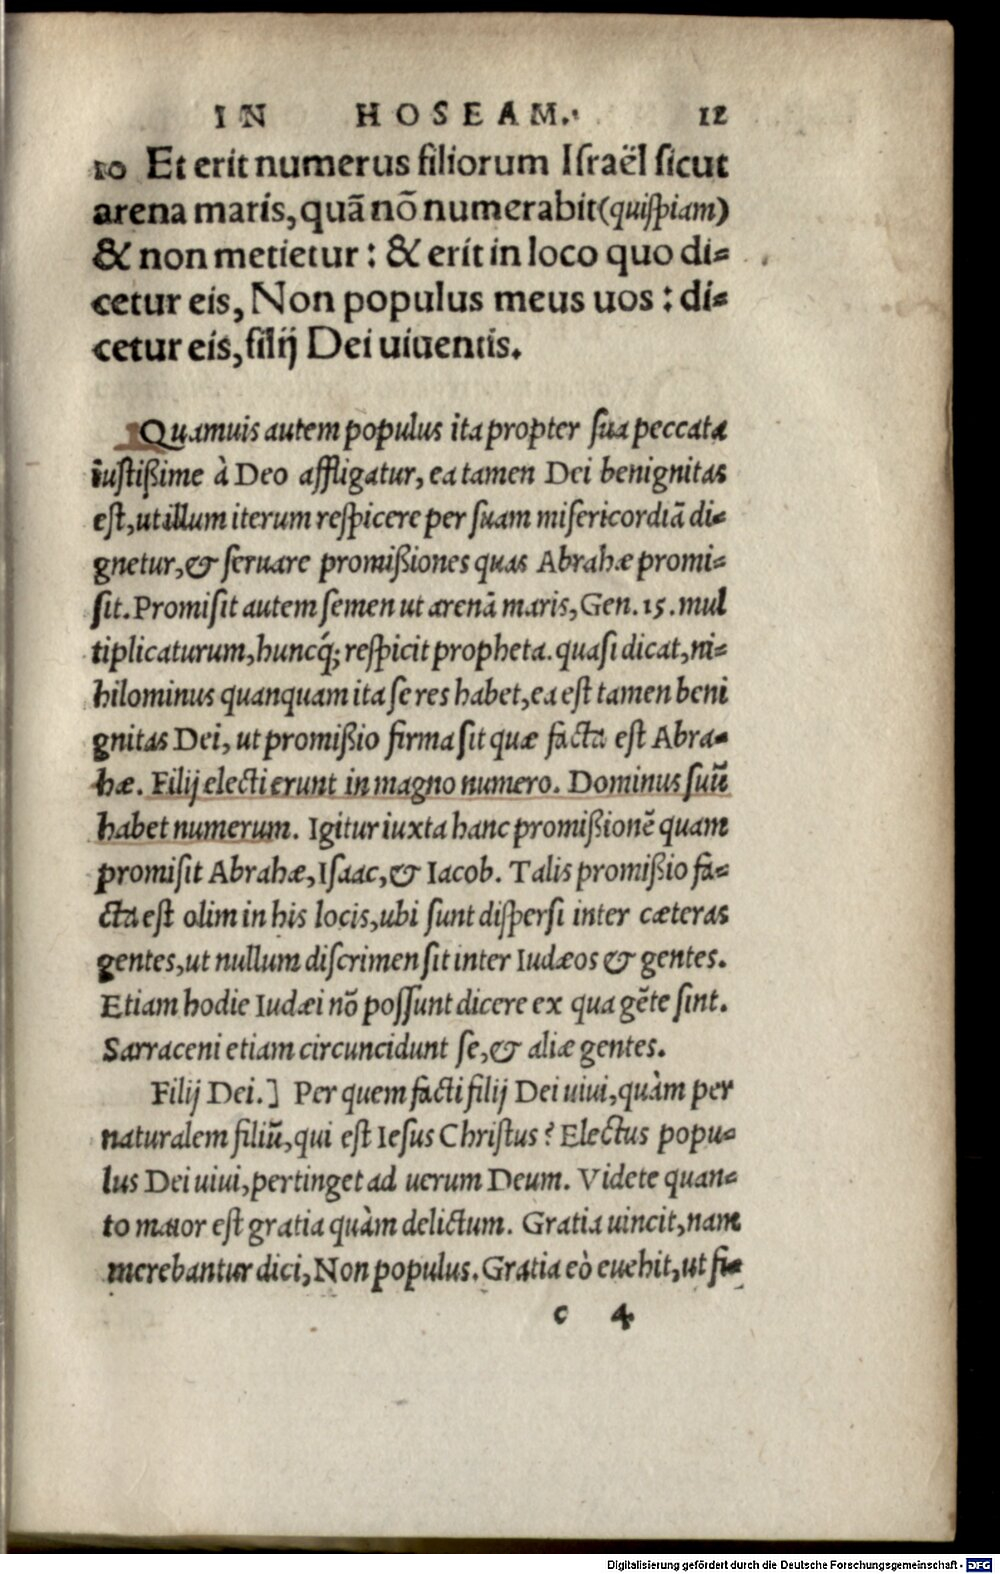 IN HOSEAM. 12
10 Et erit numerus filiorum Iſraël ſicut
arena maris, quā nō numerabit (quiſpiam)
& non metietur : & erit in loco quo di=
cetur eis, Non populus meus uos : di=
cetur eis, filij Dei uiuentis.
Quamuis autem populus ita propter ſua peccata
iuſtißime à Deo affligatur, ea tamen Dei benignitas
eſt, ut illum iterum reſpicere per ſuam miſericordiā di=
gnetur, & ſeruare promißiones quas Abrahæ promi=
ſit. Promiſit autem ſemen ut arenā maris, Gen. 15. mul
tiplicaturum, huncq́; reſpicit propheta. quaſi dicat, ni=
hilominus quanquam ita ſe res habet, ea eſt tamen beni
gnitas Dei, ut promißio firma ſit quæ facta eſt Abra=
hæ. Filij electi erunt in magno numero. Dominus ſuū
habet numerum. Igitur iuxta hanc promißionē quam
promiſit Abrahæ, Iſaac, & Iacob. Talis promißio fa=
cta eſt olim in his locis, ubi ſunt diſperſi inter cæteras
gentes, ut nullum diſcrimen ſit inter Iudæos & gentes.
Etiam hodie Iudæi nō poſſunt dicere ex qua gēte ſint.
Sarraceni etiam circuncidunt ſe, & aliæ gentes.
Filij Dei.] Per quem facti filij Dei uiui, quàm per
naturalem filiū, qui eſt Ieſus Chriſtus? Electus popu=
lus Dei uiui, pertinget ad uerum Deum. Videte quan=
to maior eſt gratia quàm delictum. Gratia uincit, nam
merebantur dici, Non populus. Gratia eò euehit, ut ſi=
c 4
Digitalisierung gefördert durch die Deutsche Forschungsgemeinschaft - DFG